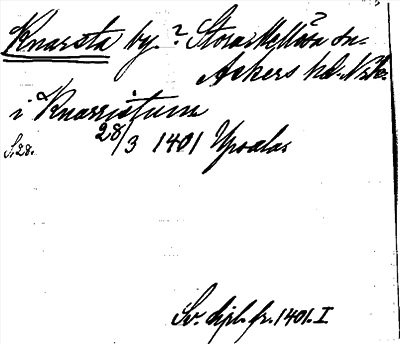 Knarsta by. ? Stora Mellösa sn.
Askers hd. Nke.
i Knarristum
S. 28. 28/3 1401 Upsala
Sv. dipl. fr. 1401. I